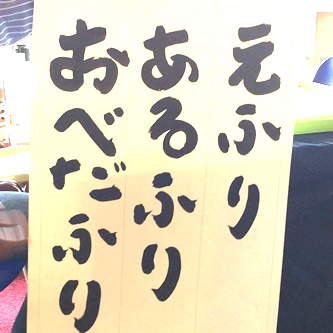 えふり
あるふり
おべだふり